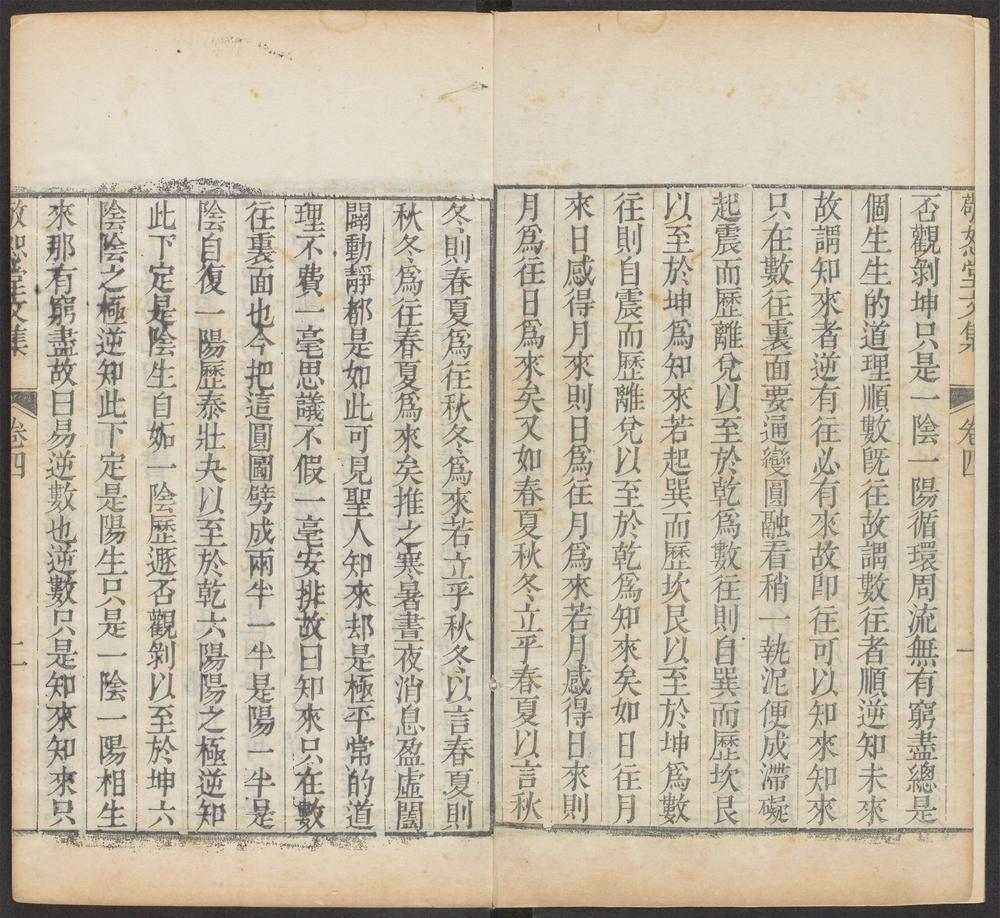 敬恕堂文集 卷四 一
否觀剝坤只是一陰一陽循環周流無有窮盡總是
個生生的道理順數旣往故謂數往者順逆知未來
故謂知來者逆有往必有來故卽往可以知來知來
只在數往裏面要通變圓融看稍一執泥便成滯礙
起震而歷離兌以至於乾爲數往則自巽而歷坎艮
以至於坤爲知來若起巽而歷坎艮以至於坤爲數
往則自震而歷離兌以至於乾爲知來矣如日往月
來日感得月來則日爲往月爲來若月感得日來則
月爲往日爲來矣又如春夏秋冬立乎春夏以言秋
冬則春夏爲往秋冬爲來若立乎秋冬以言春夏則
秋冬爲往春夏爲來矣推之寒暑晝夜消息盈虛闔
闢動靜都是如此可見聖人知來却是極平常的道
理不費一毫思議不假一毫安排故曰知來只在數
往裏面也今把這圓圖劈成兩半一半是陽一半是
陰自復一陽歷泰壯夬以至於乾六陽陽之極逆知
此下定是陰生自姤一陰歷遯否觀剝以至於坤六
陰陰之極逆知此下定是陽生只是一陰一陽相生
來那有窮盡故曰易逆數也逆數只是知來知來只
敬恕堂文集 卷四 二